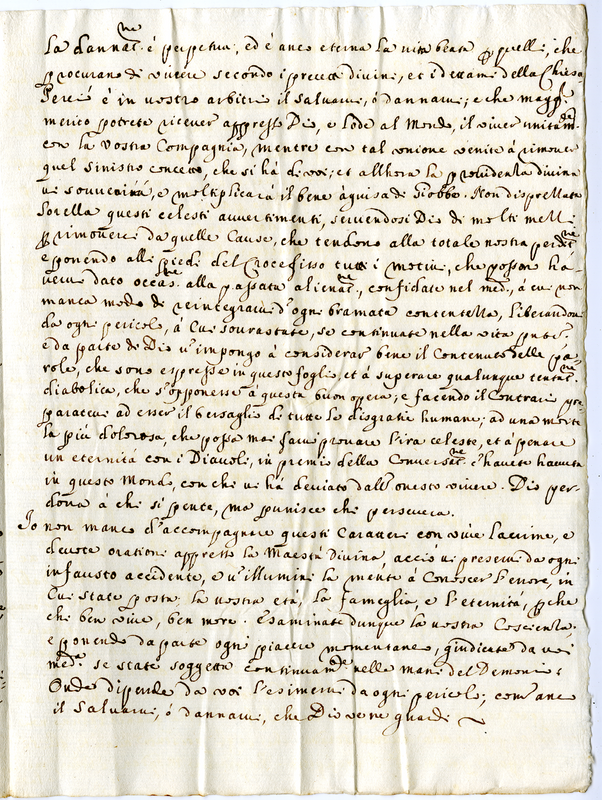 la dannat.ne è perpetua, ed è anco eterna la vita beata p quelli, che
procurano di vivere secondo i precetti divini, et i dettami della Chiesa
Perciò è in vostro arbitrio il salvarvi, ò dannarvi; e che magg.r
merito potrete ricever appresso Dio, e lode al Mondo, il viver unitam.te
con la vostra Compagnia, mentre con tal unione venite à rimover
quel sinistro concetto, che si hà di voi; et allhora la providenza divina
vi souvenirà, e moltiplicarà il bene à guisa di Giobbe. Non disprezzate
Sorella questi celesti avvertimenti, servendosi Dio di molti mezzi
p rimovere da quelle Cause, che tendono alla totale nostra perdit.ne
e ponendo alli piedi del Crocefisso tutti i motivi, che posson ha-
vervi dato occas.ne alla passata alienat.ne, confidate nel med.o, à cui non
manca modo di reintegrarvi d'ogni bramata contentezza, liberandovi
da ogni pericolo, à cui sourastate, se continuate nella vita pnte;
e da parte di Dio v'impongo à considerar bene il Contenuto delle pa-
role, che sono espresse in questo foglio, et à superare qualunque tentat.ne
diabolica, che s'opponesse à questa buon opera; e facendo il Contrario pre-
paratevi ad esser il bersaglio di tutte le disgratie humane; ad una morte
la più dolorosa, che possa mai farvi provare l'ira celeste, et à penare
un eternità con i Diavoli, in premio della Conversat.ne c'havete havuta
in questo Mondo, con che vi hà deviato dall'onesto vivere. Dio per-
dona à chi si pente, ma punisce chi persevera.
Io non manco d'accompagnare questi Caratteri con vive lacrime, e
devote orationi appresso la Maestà Divina, acciò vi preservi da ogni
infausto accidente, e v'illumini la mente à Conoscer l'errore, in
Cui state posta la vostra età, la fameglia, e l'eternità, pche
chi ben vive, ben more. Esaminate dunque la vostra Coscienza;
e ponendo da parte ogni piacere momentaneo, giudicate da voi
med.ma se state soggetta continuam.te nelle mani del Demonio;
Onde dipende da voi l'esimervi da ogni pericolo; com'anco
il salvarvi, ò dannarvi, che Dio ve ne guardi